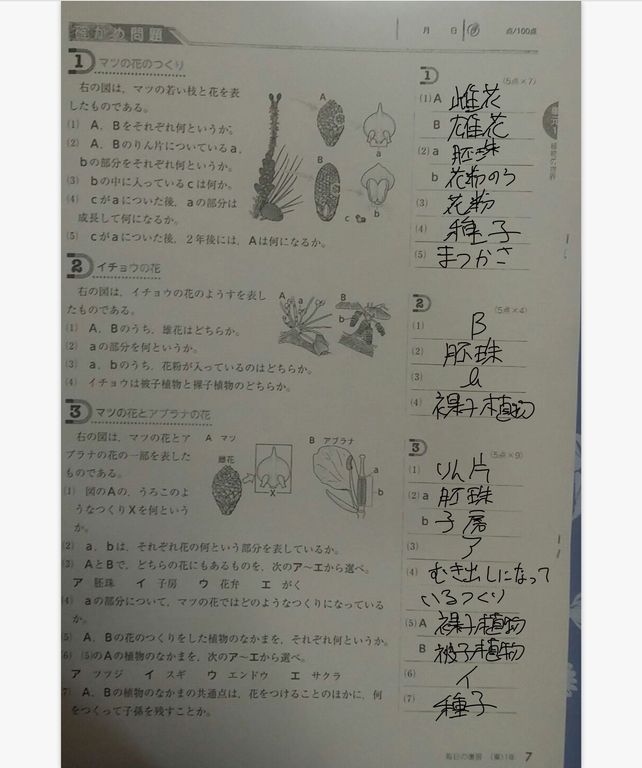 確かめ問題
月 日 点/100点
1 マツの花のつくり
右の図は，マツの若い枝と花を表し
たものである。
(1) A，Bをそれぞれ何というか。
(2) A，Bのりん片についているa，
bの部分をそれぞれ何というか。
(3) bの中に入っているcは何か。
(4) cがaについた後，aの部分は
成長して何になるか。
(5) cがaについた後，2年後には，Aは何になるか。
A
a
B
b
c
2 イチョウの花
右の図は，イチョウの花のようすを表し
たものである。
(1) A，Bのうち，雄花はどちらか。
(2) aの部分を何というか。
(3) a，bのうち，花粉が入っているのはどちらか。
(4) イチョウは被子植物と裸子植物のどちらか。
A
a
B
b
3 マツの花とアブラナの花
右の図は，マツの花とア
ブラナの花の一部を表した
ものである。
(1) 図のAの，うろこのよ
うなつくりXを何という
か。
A マツ
雌花
X
B アブラナ
a
b
(2) a，bは，それぞれ花の何という部分を表しているか。
(3) AとBで，どちらの花にもあるものを，次のア〜エから選べ。
ア 胚珠 イ 子房 ウ 花弁 エ がく
(4) aの部分について，マツの花ではどのようなつくりになっている
か。
(5) A，Bの花のつくりをした植物のなかまを，それぞれ何というか。
(6) (5)のAの植物のなかまを，次のア〜エから選べ。
ア ツツジ イ スギ ウ エンドウ エ サクラ
(7) A，Bの植物のなかまの共通点は，花をつけることのほかに，何
をつくって子孫を残すことか。
1 (5点×7)
(1) A 雌花
B 雄花
(2) a 胚珠
b 花粉のう
(3) 花粉
(4) 種子
(5) まつかさ
2 (5点×4)
(1) B
(2) 胚珠
(3) b
(4) 裸子植物
3 (5点×9)
(1) りん片
(2) a 胚珠
b 子房
(3) ア
(4) むき出しになって
いるつくり
(5) A 裸子植物
B 被子植物
(6) イ
(7) 種子
植物の世界
毎日の復習 (東)1年 7